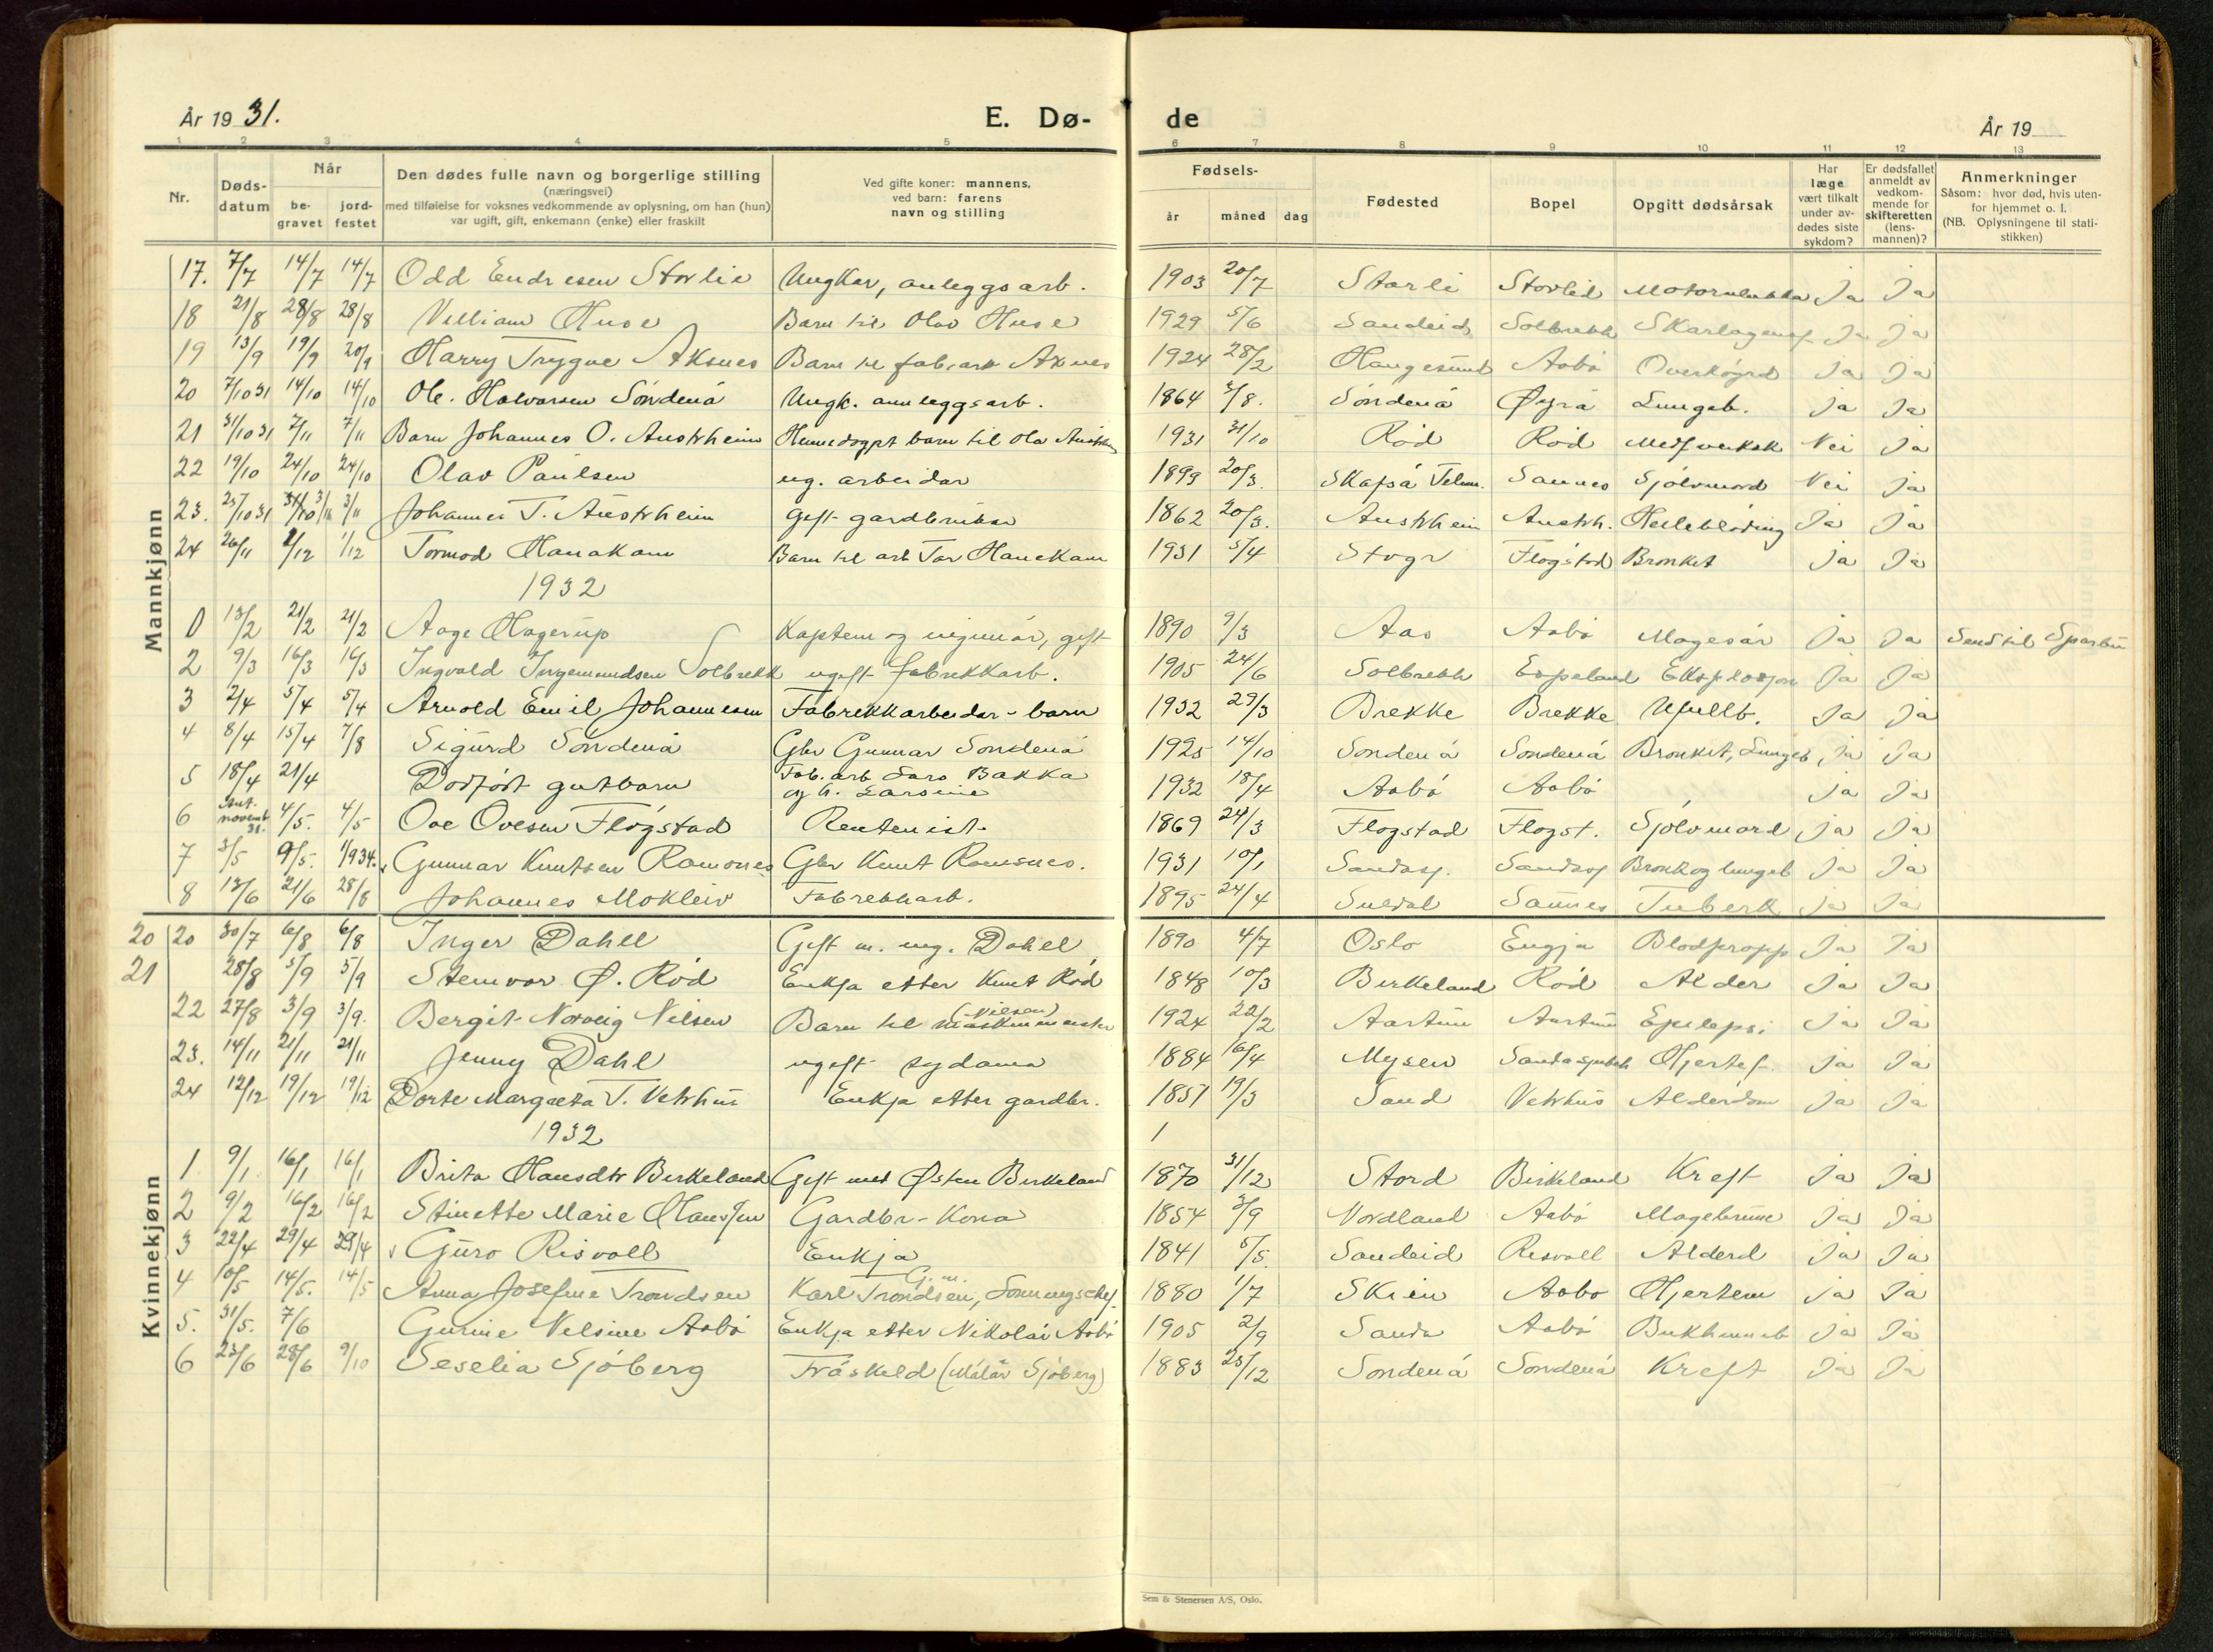 År 19 31.
E. Dø-
de
År 19
1 2 3 4 5 6 7 8 9 10 11 12 13
Nr.
Døds-
datum
Når
be-
gravet
jord-
festet
Den dødes fulle navn og borgerlige stilling
(næringsvei)
med tilføielse for voksnes vedkommende av oplysning, om han (hun)
var ugift, gift, enkemann (enke) eller fraskilt
Ved gifte koner: mannens,
ved barn: farens
navn og stilling
Fødsels-
år
måned
dag
Fødested
Bopel
Opgitt dødsårsak
Har
læge
vært tilkalt
under av-
dødes siste
sykdom?
Er dødsfallet
anmeldt av
vedkom-
mende for
skifteretten
(lens-
mannen)?
Anmerkninger
Såsom: hvor død, hvis uten-
for hjemmet o. l.
(NB. Oplysningene til stati-
stikken)
Mannkjønn
17. 7/7 14/7 14/7 Odd Endresen Storlie Ungkar, anleggsarb. 1903 20/7 Storli Storlid Ja Ja
18 21/8 28/8 28/8 Villiam Huse Barn til Olav Huse 1929 5/6 Sandeid Solbrekk Skarlagensf Ja Ja
19 13/9 19/9 20/9 Harry Trygve Aksnes Barn til fab.arb Axnes 1924 28/2 Haugesund Aabø Overkøyrd Ja Ja
20 7/10 31 14/10 14/10 Ole Halvorsen Søndenå Ungk. annleggsarb. 1864 /8. Søndenå Øyra Lungeb. Ja Ja
21 31/10 31 7/11 7/11 Barn Johannes O. Austrheim Heimedøypt barn til Ola 1931 31/10 Rød Rød Nei Ja
22 19/10 24/10 24/10 Olav Paulsen ug. arbeidar 1899 20/3. Skafså Telem. Saunes Sjølvmord Nei Ja
23. 25/10 31 31/10 3/11 3/11 Johannes T. Austrheim gift gardbrukar 1862 20/3. Austrheim Austrh. Heilebløding Ja Ja
24 26/11 2/12 1/12 Tormod Hanakam Barn til arb Tor Hanekam 1931 5/4 Flogstad Bronkit Ja Ja
1932
0 13/2 21/2 21/2 Aage Hagerup Kaptein og ingeniør, gift 1890 9/3 Aas Aabø Magesår Ja Ja Send til
2 9/3 16/3 16/3 Ingvald Ingemundsen Solbrekk ugift fabrekkarb. 1905 24/6 Solbrekk Espeland Eksplosjon Ja Ja
3 2/4 5/4 5/4 Arnold Emil Johannesen Fabrekkarbeidar-barn 1932 29/3 Brekke Brekke Ufullb. Ja Ja
4 8/4 15/4 7/8 Sigurd Søndenå Gbr Gunnar Søndenå 1925 14/10 Søndenå Søndenå Bronkit, Lungeb Ja Ja
5 18/4 21/4 Dødfødt gutbarn Fab.arb Lars Bakka
og h. Larsine 1932 18/4 Aabø Aabø Ja Ja
6 novemb 31. 4/5. 4/5 Ove Ovesen Flógstad Rentenist 1869 24/3 Flogstad Flogst. Sjølvmord Ja Ja
7 3/5 9/5. 1/9 34. Gunnar Knutsen Ramsnes Gbr Knut Ramsnes. 1931 10/1 Sandasj. Sandasj Bronk og lungeb Ja Ja
8 13/6 21/6 28/8 Johannes Mokleiv Fabrekkarb. 1895 24/4 Suldal Saunes Tuberk Ja Ja
Kvinnekjønn
20 20 30/7 6/8 6/8 Inger Dahll Gift m. ing. Dahll 1890 4/7 Oslo Engja Blodpropp Ja Ja
21 28/8 5/9 5/9 Steinvor Ø. Rød Enkja etter Knut Rød 1848 10/3 Birkeland Rød Alder Ja Ja
22 27/8 3/9 3/9. Bergit Norveig Nilsen Barn til maskinmeister (Nilsen) 1924 22/2 Aartun Aartun Epilepsi Ja Ja
23. 14/11 21/11 21/11 Jenny Dahl ugift sydama 1884 16/4 Mysen Hjertef. Ja Ja
24 12/12 19/12 19/12 Dorte Margreta T. Vetrhus Enkja etter gardbr. 1851 19/3 Sand Vetrhus Alderdom Ja Ja
1932
1 9/1 16/1 16/1 Brita Hansdtr Birkeland Gift med Østen Birkeland 1870 31/12 Stord Birkeland Kreft Ja Ja
2 9/2 16/2 16/2 Stinette Marie Hanssen Gardbr-kona 1854 3/9 Nordland Aabø Ja Ja
3 22/4 29/4 29/4 Guro Risvoll Enkja 1841 5/5. Sandeid Risvoll Alderd Ja Ja
4 10/5 14/5. 14/5 Anna Josefine Trondsen G. m. Karl Trondsen, 1880 1/7 Skien Aabø Ja Ja
5. 31/5. 7/6 Gurine Velsine Aabø Enkja etter Nikolai Aabø 1905 2/9 Sauda Aabø Bukhinneb Ja Ja
6 23/6 28/6 9/10 Seselia Sjøberg Fråskild (Målar Sjøberg) 1883 23/12 Søndenå Søndenå Kreft Ja Ja
Sem & Stenersen A/S, Oslo.